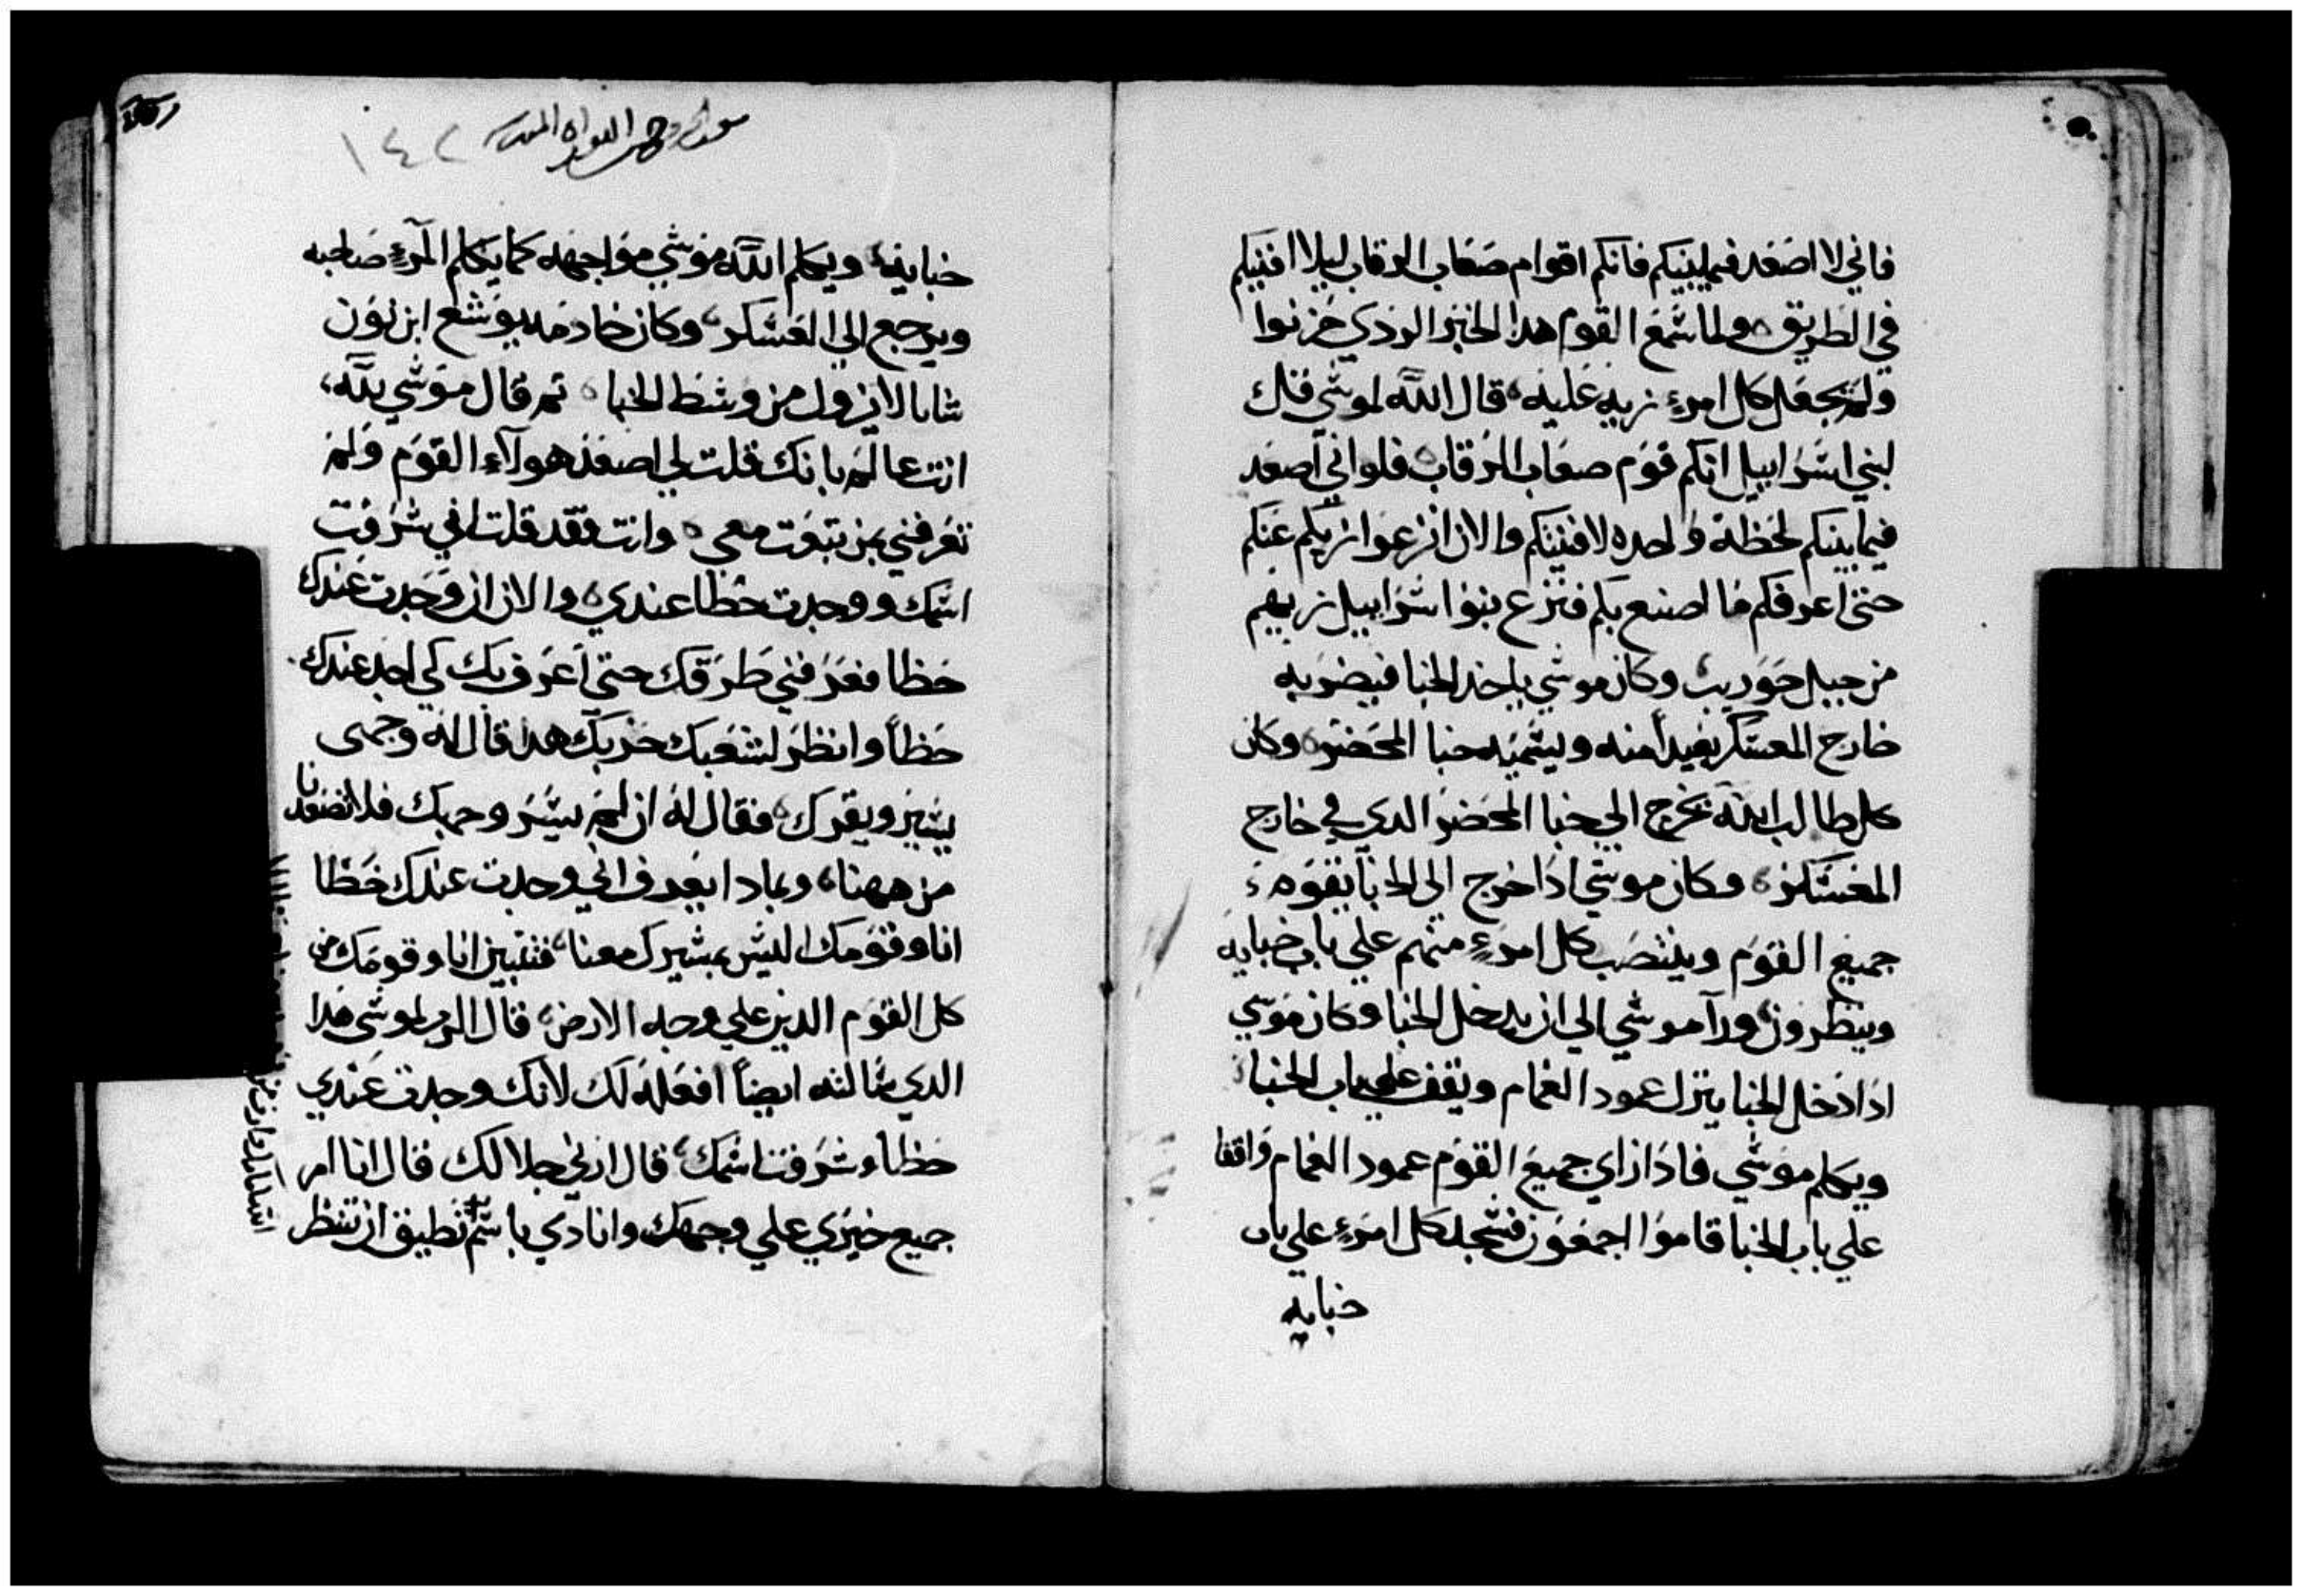 فاني لا اصَعَد فيما بينكم فانكم اقوام صعَاب الرقاب ليلا افنيكم
في الطريق ولما سمَع القوم هدا الخبر الردي حزنوا
ولم يجعَل كل امرءٍ زيه عَليه قال الله لموسي قل
لبني اسرَاييل انكم قوَم صعَاب الرقاب فلواني اصعَد
فيما بينكم لحَظة وَاحده لافنيتكم والان انزعوَا زيكم عَنكم
حتي اعرفكم مَا اصنع بكم فنزع بنوا اسرَاييل زيهم
من جبل حَوَريب وكان موسي ياخد الخبا فيضربه
خارج المعسكر بعَيداً منه ويسميه خبا المحَضر وكان
كل طالب الله يخرج الي خبا المحَضر الدي في خارج
المعَسَكر وكان موسي ادَا خرج الى الخبا يقوَم
جميع القوَم وينتصَب كل امرءٍ منهم علي باب خبايه
وينظرون ورآ موسي الي ان يدخل الخبا وكان موَسي
ادَا دَخل الخبا ينزل عمود الغمام ويقف علي باب الخبا
ويكلم موَسي فادَا راي جميعَ القوَم عمود الغمام وَاقفا
علي باب الخبا قاموَا اجمعَون فسَجد كل امرَءٍ علي باب
خبايه
١٤٢
خبايه ويكلم الله موَسي موَاجهه كما يكلم المرءِ صَاحبه
ويرجع الي العَسَكر وكان خادمَه يوَشع ابن نوَن
شابا لا يزول من وسَط الخبا تم قال موَسي لله
انت عالم بانك قلت لي اصعَد هولآء القوَم وَلم
تعَرفني بمن تبعَت معي وانت فقد قلت اني شرَفت
اسَمك ووجدت حظا عندي والان ان وَجَدت عَندك
حَظا فعَرَفني طَرَقك حتي اعَرَف بك كي اجد عندك
حَظاً وانظرَ لشعَبك حزبك هدا قال له وجهى
يسَير ويقدرك فقال لهُ ان لم يسَر وجهك فلا تصَعدنا
من ههنا وبمادا يعَرف اني وجدت عندك حَظا
انا وقوَمك اليس بسَيرك معنا فنتبين انا وقومَك من
كل القوَم الدين علي وجه الارض قال الرب لموسَي هَدا
الدي سَالته ايضاً افعَلهُ لك لانك وجدت عَندي
حَظا وشرَفت اسَمك قال ارني جلالك قال انا امر
جميع خيرَي علي وجهَك وانادي باسَم
تطيق ان تنظر